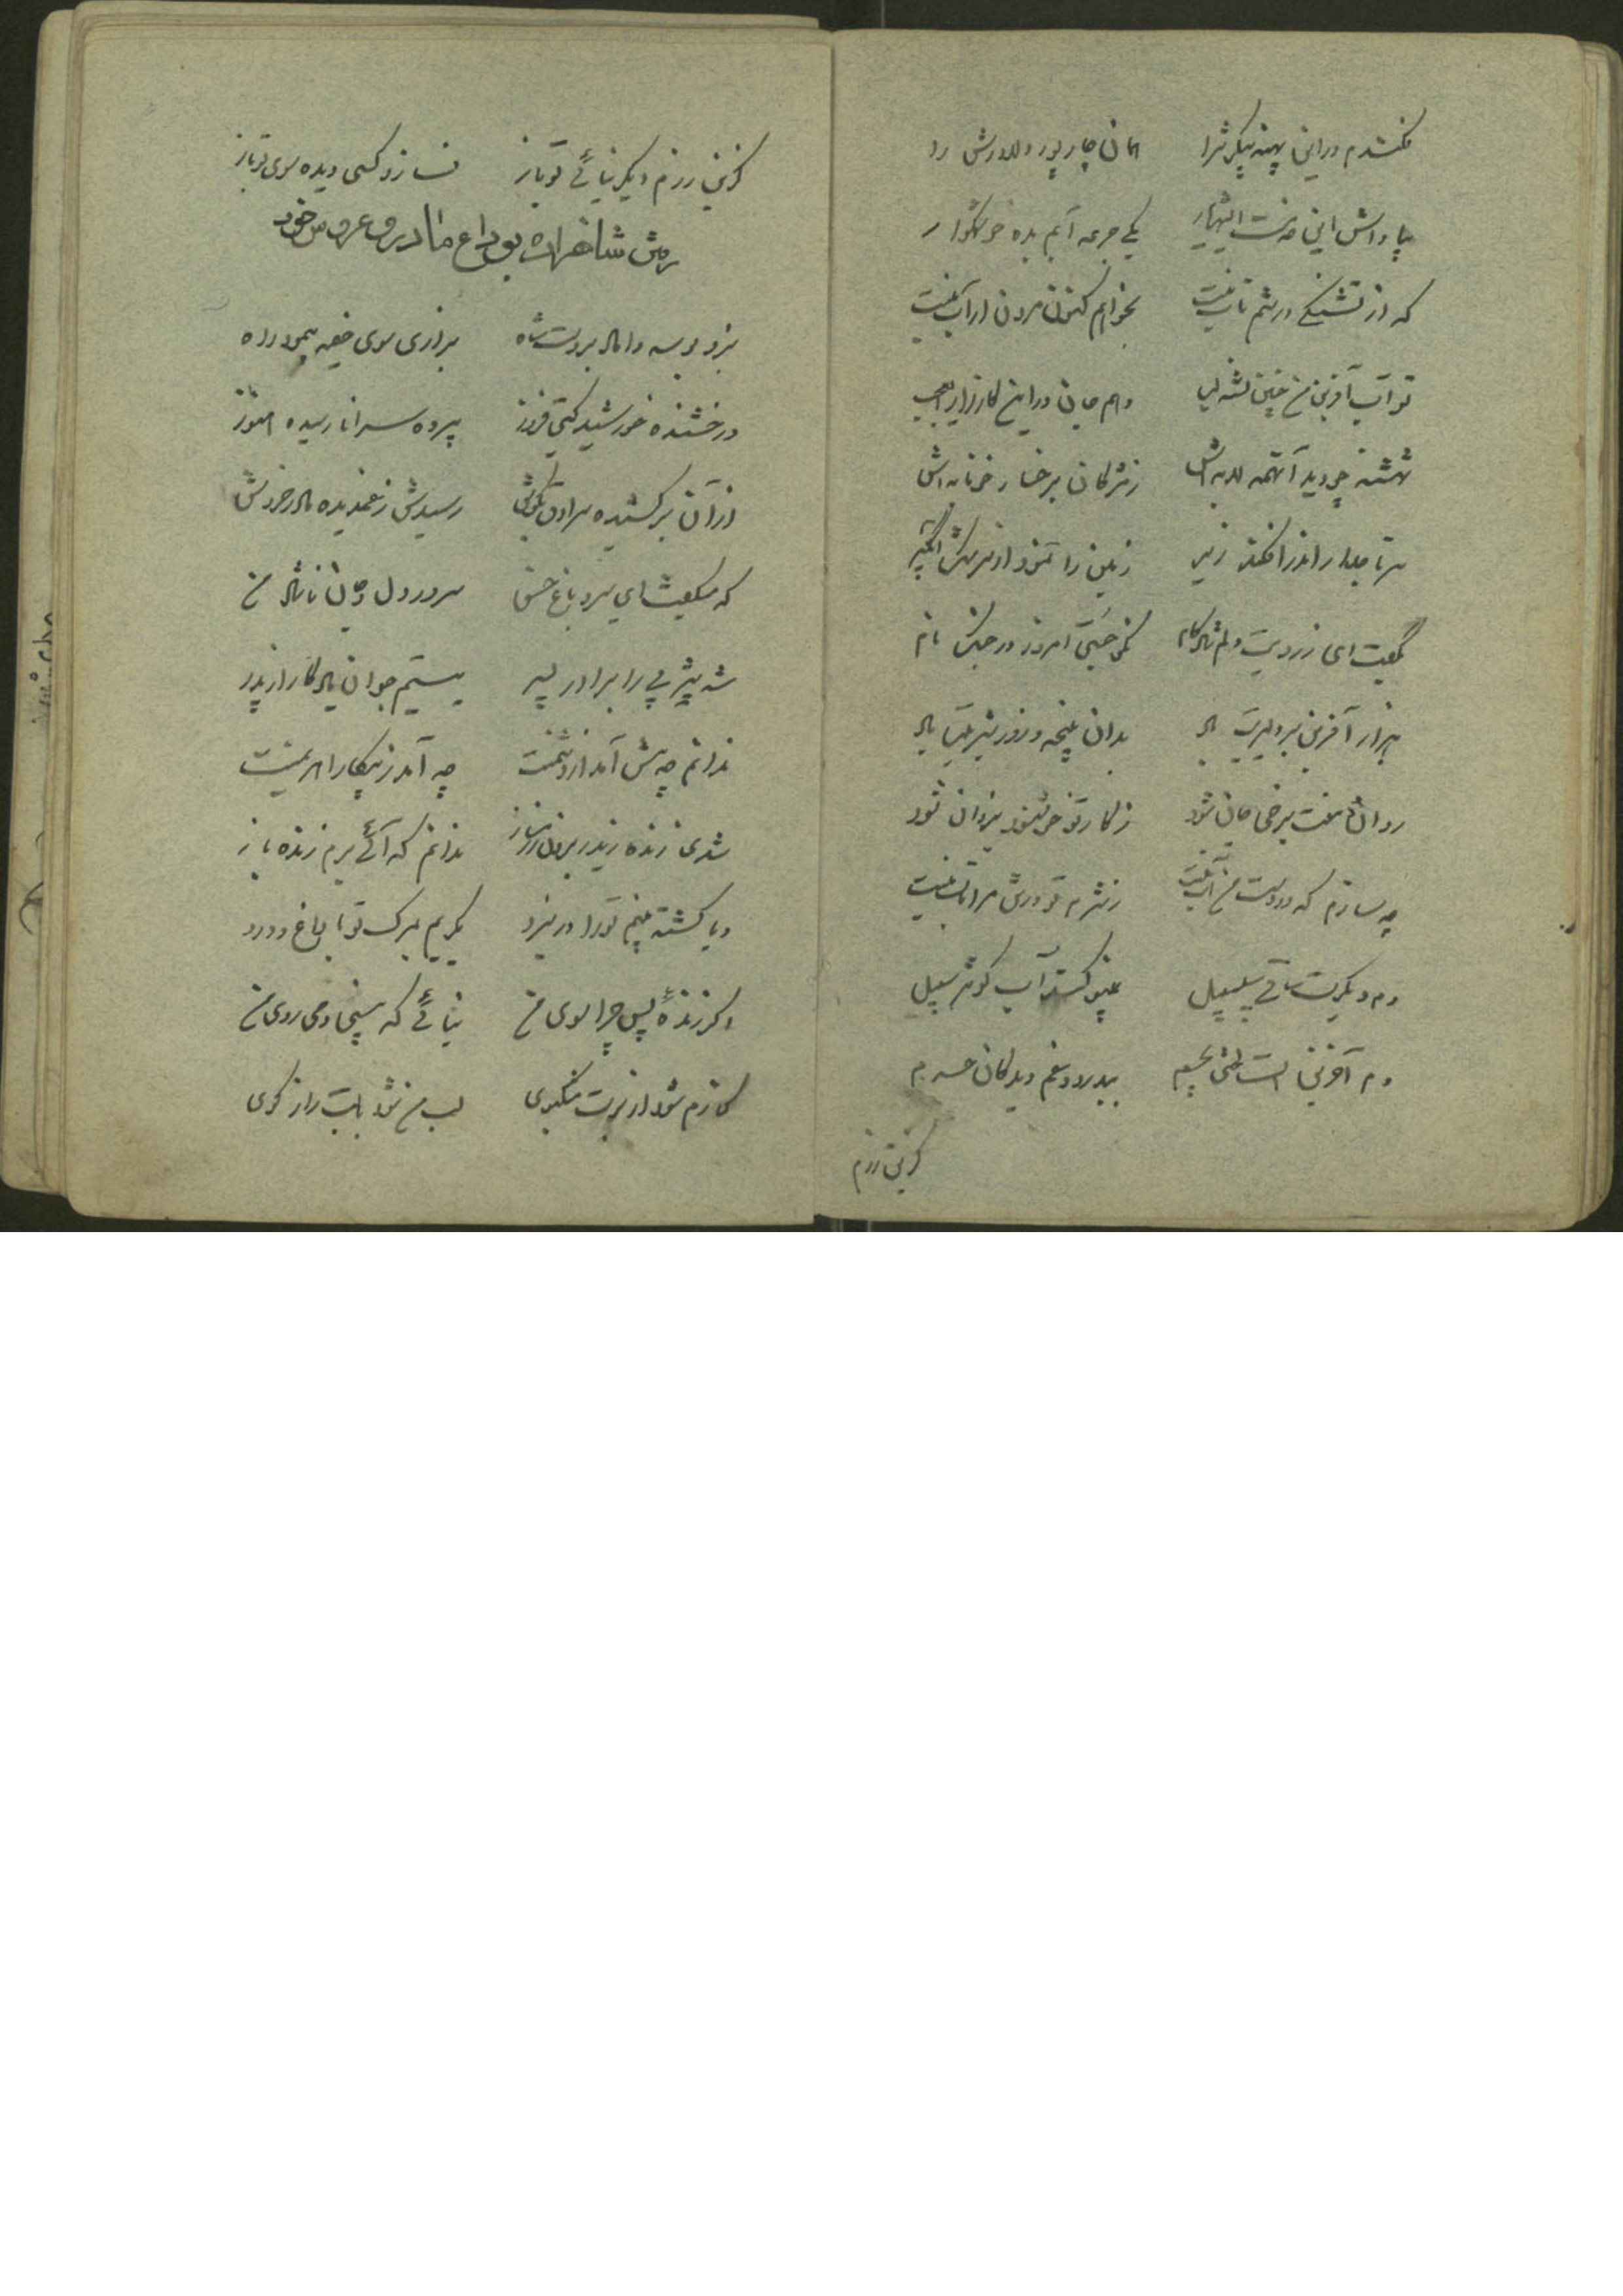 فکندم در این پهنه پیکرش را همان چار پور دلاورش را
بپاداش این خدمت ای شهریار یکی جرعه آبم بده خوشگوار
که از تشنگی در تنم تاب نیست بخواهم کنون مردن ار آب نیست
تو آب آفرین من چنین تشنه لب دهم جان در این کارزار ای عجب
شهنشه چو دید آنهمه لابه اش ز مژگان برخسار خونابه اش
سر تاجدار اندر افکند زیر زمین را نمود از سرشک
بگفت ای ز رویت دلم شادکام نکو جستی امروز در جنگ نام
هزار آفرین بر دلیریت باد بدان پنجه و زور شیریت باد
روان منت برخی جان شود ز کار تو خوشنود یزدان شود
چه سازم که در دست من آب نیست ز شرم تو در تن مرا تاب نیست
دم دیگرت ساقی سلسبیل بنوشاند آب کوثر سبیل
دم آخرین است لختی بچم بدرود غم دیدگان حرم
کزین رزم
کزین رزم دیگر نیائی تو باز نسازد کسی دیده سوی تو باز
رفتن شاهزاده بوداع مادر و عروس خود
بزد بوسه داماد بر دست شاه بزاری سوی خیمه پیمود راه
درخشنده خورشید گیتی فروز بپرده سرا نارسیده هنوز
از آن برکشیده سرادق بگوش رسیدش ز غمدیده مادر خروش
که میگفت ای سرو باغ حسن سرور دل و جان ناشاد من
شه یثربی را برادر پسر یتیم جوان یادگار از پدر
ندانم چه پیش آمد از دشمنت چه آمد ز پیکار اهریمنت
شدی زنده زیدر برون رزمساز ندانم که آئی برم زنده باز
و یا کشته بینم تو را در نبرد بگریم بمرگ تو با داغ و درد
اگر زنده پس چرا سوی من نیائی که بینی دمی روی من
کنارم شود از برت مشکبوی لب من شود با لبت راز گوی